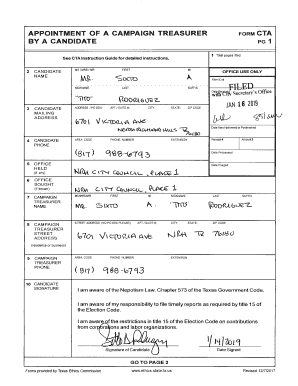 APPOINTMENT OF A CAMPAIGN TREASURER
BY A CANDIDATE
FORM CTA
PG 1
See CTA Instruction Guide for detailed instructions.
1 Total pages filed:
2 CANDIDATE NAME
MS / MRS / MR FIRST MI
MR. SIXTO A
NICKNAME LAST SUFFIX
TITO RODRIGUEZ
OFFICE USE ONLY
FILED
City Secretary's Office
JAN 16 2019
3 CANDIDATE MAILING ADDRESS
ADDRESS / PO BOX; APT / SUITE #; CITY; STATE; ZIP CODE
6701 VICTORIA AVE
NORTH RICHLAND HILLS TX
76180
Date Hand-delivered or Postmarked
4 CANDIDATE PHONE
AREA CODE PHONE NUMBER EXTENSION
(817) 988-6793
Receipt # Amount $
Date Processed
5 OFFICE HELD (if any)
NRH CITY COUNCIL, PLACE 1
Date Imaged
6 OFFICE SOUGHT (if known)
NRH CITY COUNCIL, PLACE 1
7 CAMPAIGN TREASURER NAME
MS / MRS / MR FIRST MI NICKNAME LAST SUFFIX
MR. SIXTO A. TITO RODRIGUEZ
8 CAMPAIGN TREASURER STREET ADDRESS
(residence or business)
STREET ADDRESS (NO PO BOX PLEASE); APT / SUITE #; CITY; STATE; ZIP CODE
6701 VICTORIA AVE NRH TX 76180
9 CAMPAIGN TREASURER PHONE
AREA CODE PHONE NUMBER EXTENSION
(817) 988-6793
10 CANDIDATE SIGNATURE
I am aware of the Nepotism Law, Chapter 573 of the Texas Government Code.
I am aware of my responsibility to file timely reports as required by title 15 of
the Election Code.
I am aware of the restrictions in title 15 of the Election Code on contributions
from corporations and labor organizations.
1/14/2019
Signature of Candidate Date Signed
GO TO PAGE 2
Forms provided by Texas Ethics Commission www.ethics.state.tx.us Revised 12/7/2017